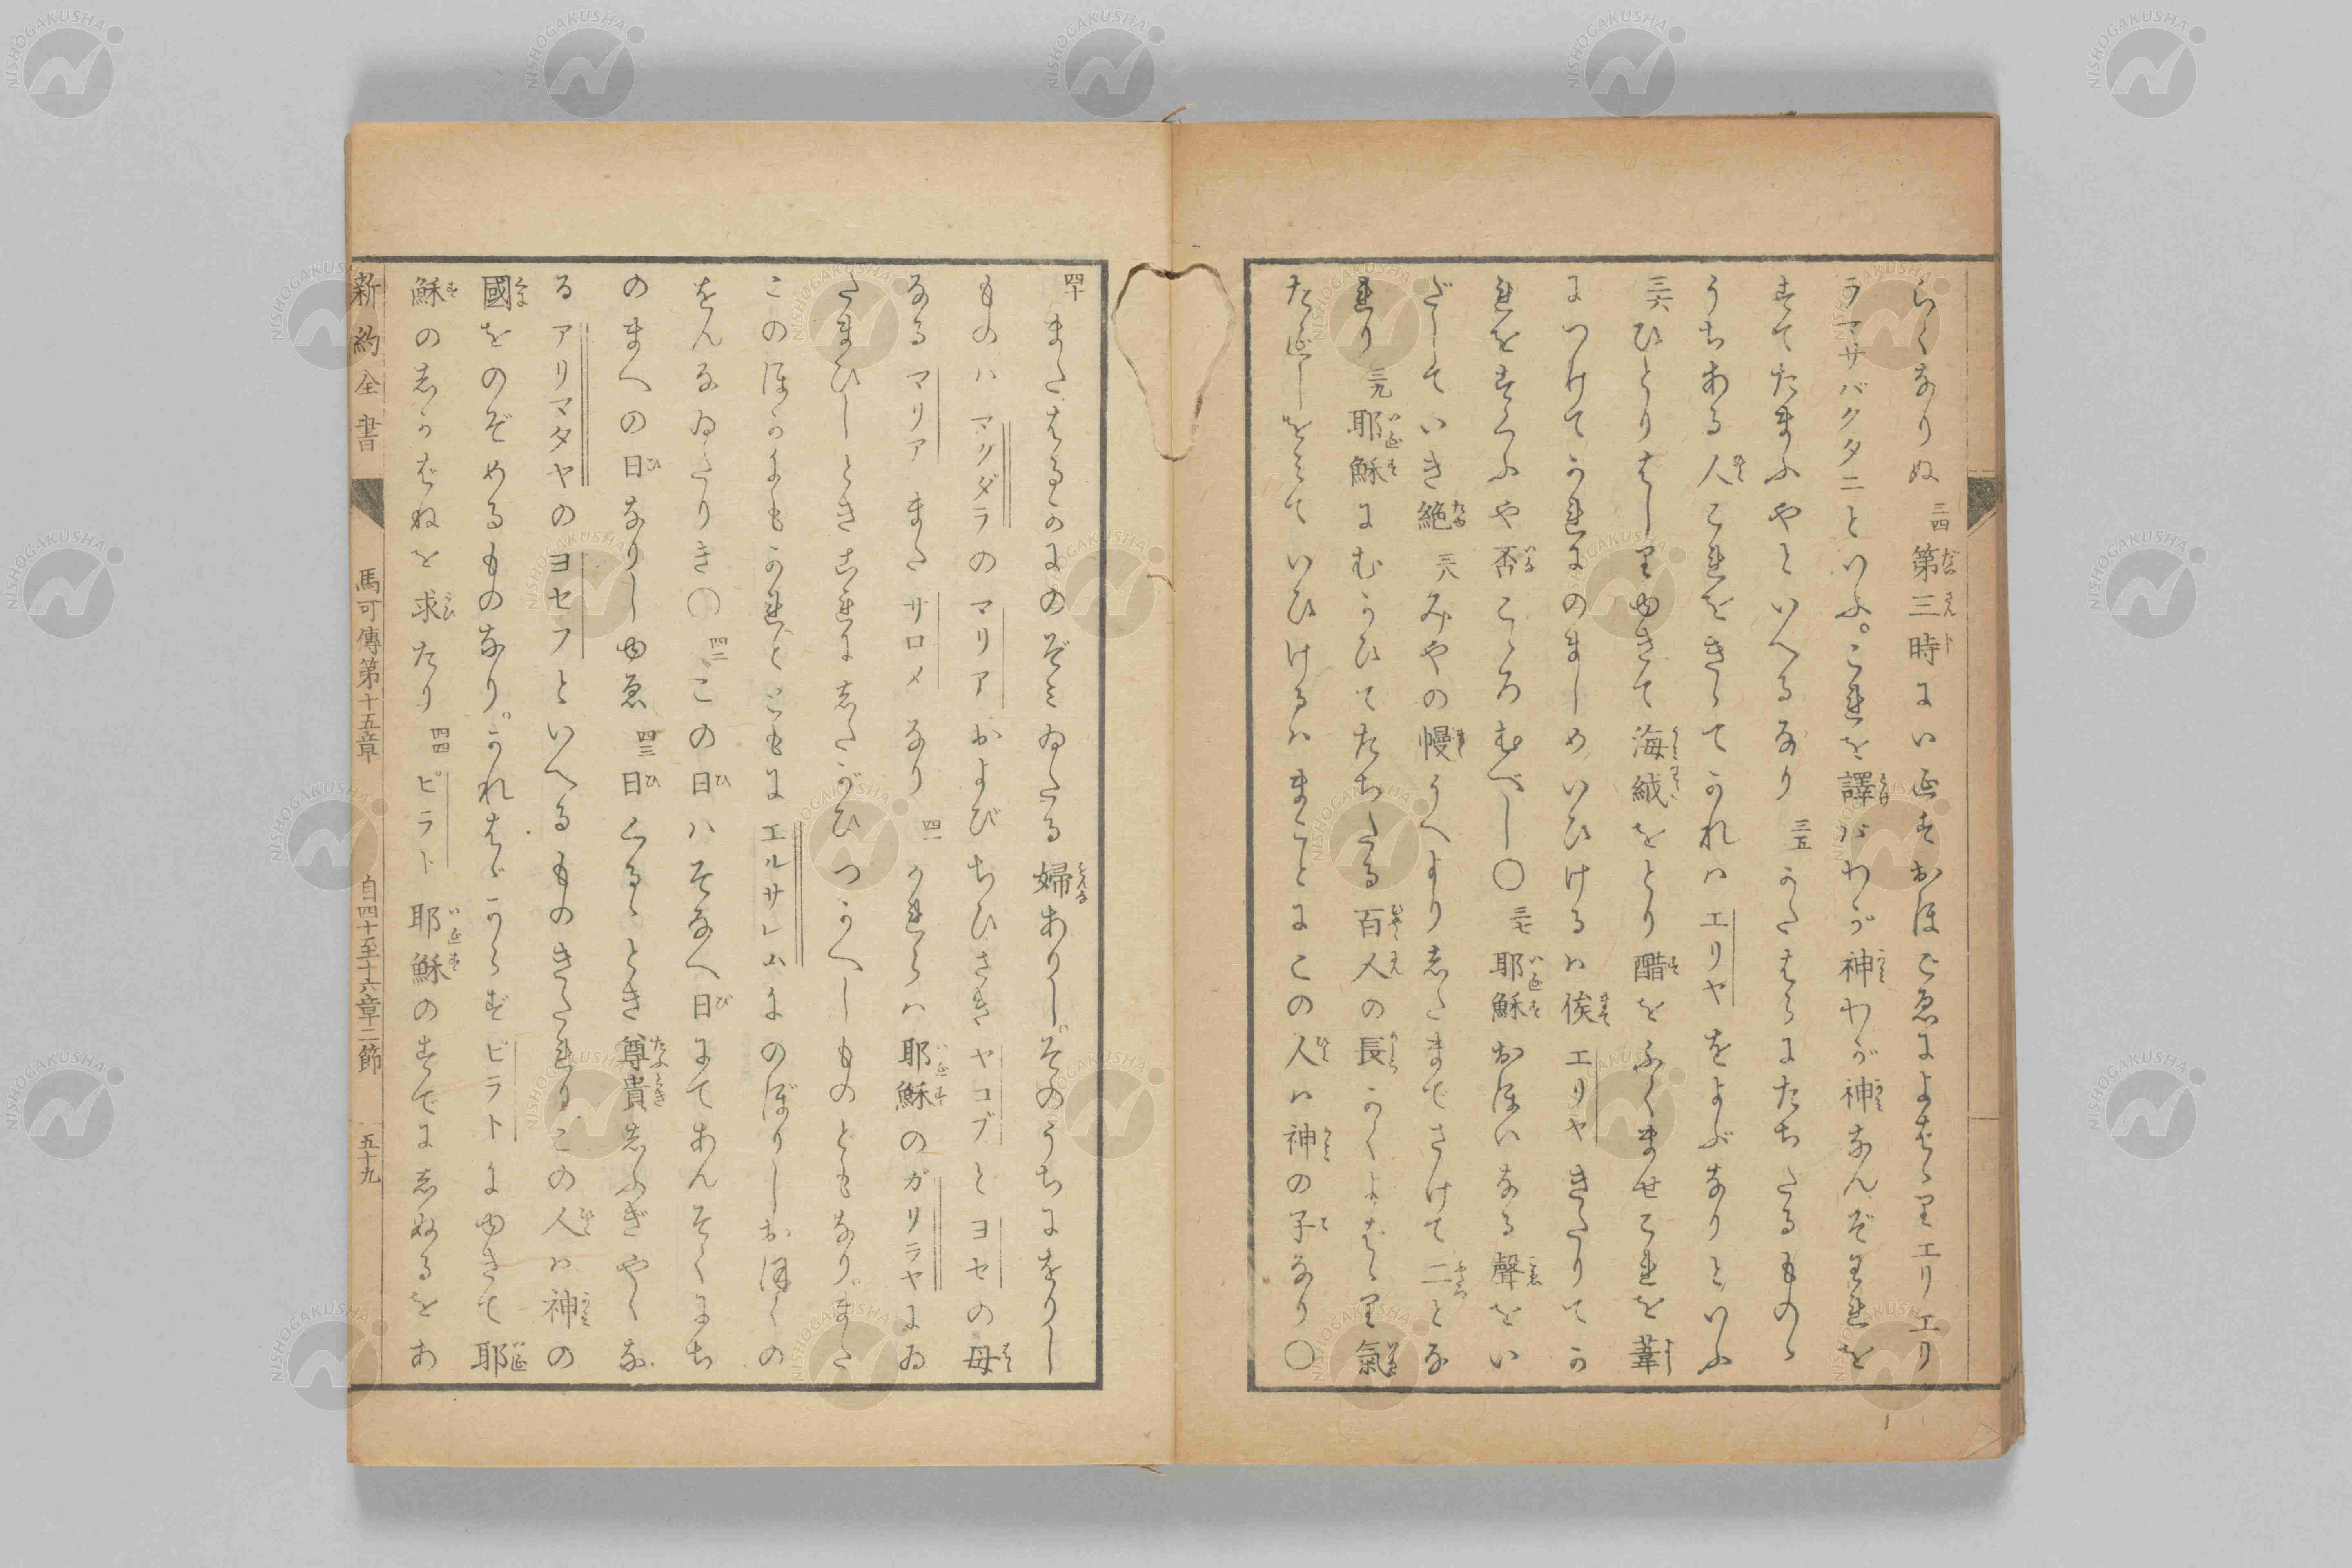 らくなりぬ 三四 第三時にいゑすおほごゑによばゝりエリエリ
ラマサバクタニといふ。これを譯ばわが神わが神なんぞわれを
すてたまふやといへるなり 三五 かたはらにたちたるものゝ
うちある人これをきゝてかれハエリヤをよぶなりといふ
三六 ひとりはしりゆきて海絨をとり醋をふくませこれを葦
につけてかれにのましめいひけるハ俟エリヤきたりてか
れをすくふや否こゝろむべし〇 三七 耶穌おほいなる聲をい
だしていき絶 三八 みやの幔うへより志たまでさけて二とな
れり 三九 耶穌にむかひてたちたる百人の長かくよばゝり氣
たえしをみていひけるハまことにこの人ハ神の子なり〇
四十 またはるかにのぞみゐたる婦ありし。そのうちにをりし
ものハマクダラのマリアおよびちひさきヤコブとヨセの母
なるマリアまたサロメなり 四一 かれらハ耶穌のガリラヤにゐ
たまひしときこれに志たがひつかへしものともなり。また
このほかにもかれとともにエルサレムにのぼりしおほくの
をんなゐたりき〇 四二 この日ハそなへ日にてあんそくにち
のまへの日なりしゆゑ 四三 日くるゝとき尊貴志ふぎやくな
るアリマタヤのヨセフといへるものきたれりこの人ハ神の
國をのぞめるものなり。かれはゞからずピラトにゆきて耶
穌の志かばねを求たり 四四 ピラト耶穌のすでに志ぬるをあ
新約全書 馬可傳第十五章 自四十至十六章二節 五十九
NISHOGAKUSHA